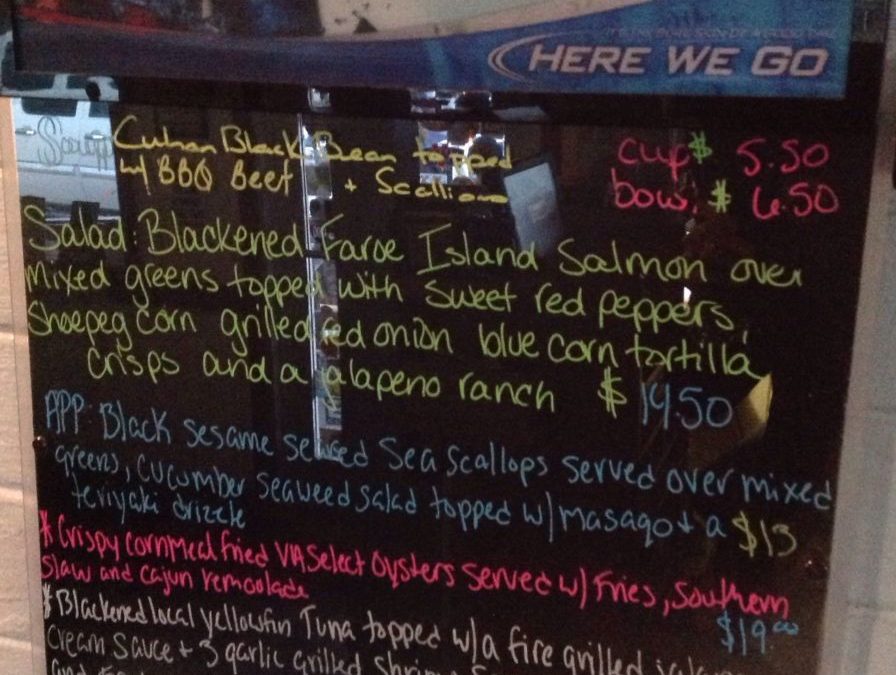 HERE WE GO
Soup: Cuban Black Bean topped cup $ 5.50
w/ BBQ Beef + Scallions bowl $ 6.50
Salad: Blackened Faroe Island Salmon over
mixed greens topped with sweet red peppers,
Shoepeg corn grilled red onion blue corn tortilla
crisps and a jalapeno ranch $ 14.50
APP: Black sesame seared Sea Scallops served over mixed
greens, cucumber seaweed salad topped w/ masago + a $13
teriyaki drizzle
* Crispy cornmeal fried VA Select Oysters served w/ fries, southern
slaw and cajun remoolade $19.00
* Blackened local yellowfin Tuna topped w/ a fire grilled
cream sauce + 3 garlic grilled shrimp